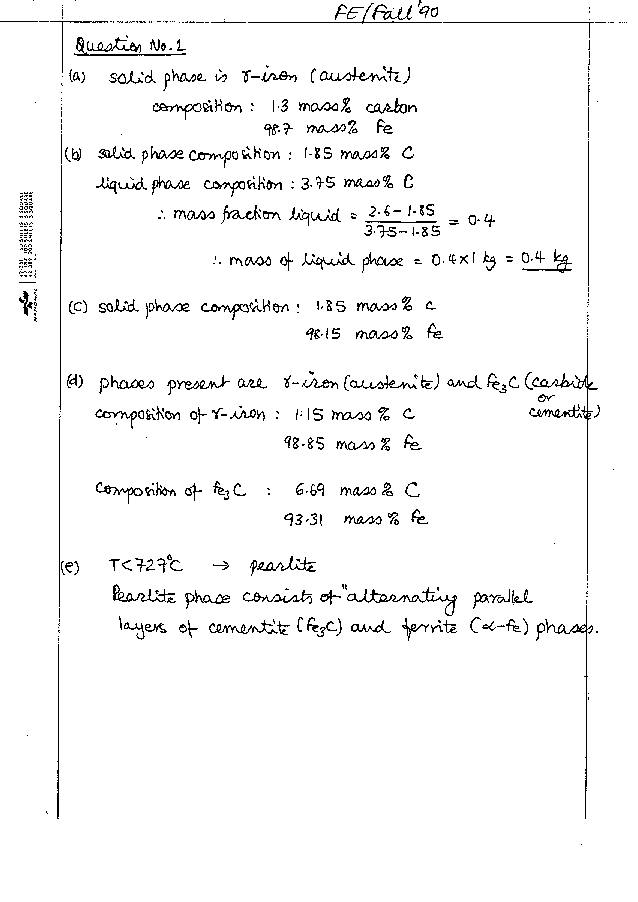 FE/Fall '90
Question No. 1
(a) solid phase is γ-iron (austenite)
composition : 1.3 mass% carbon
98.7 mass% Fe
(b) solid phase composition : 1.85 mass% C
liquid phase composition : 3.75 mass% C
∴ mass fraction liquid = (2.6 - 1.85)/(3.75 - 1.85) = 0.4
∴ mass of liquid phase = 0.4 x 1 kg = 0.4 kg
(c) solid phase composition : 1.85 mass% C
98.15 mass% Fe
(d) phases present are γ-iron (austenite) and Fe₃C (carbide
or
composition of γ-iron : 1.15 mass% C cementite)
98.85 mass% Fe
composition of Fe₃C : 6.69 mass% C
93.31 mass% Fe
(e) T<727°C → pearlite
Pearlite phase consists of "alternating parallel
layers of cementite (Fe₃C) and ferrite (α-Fe) phases.